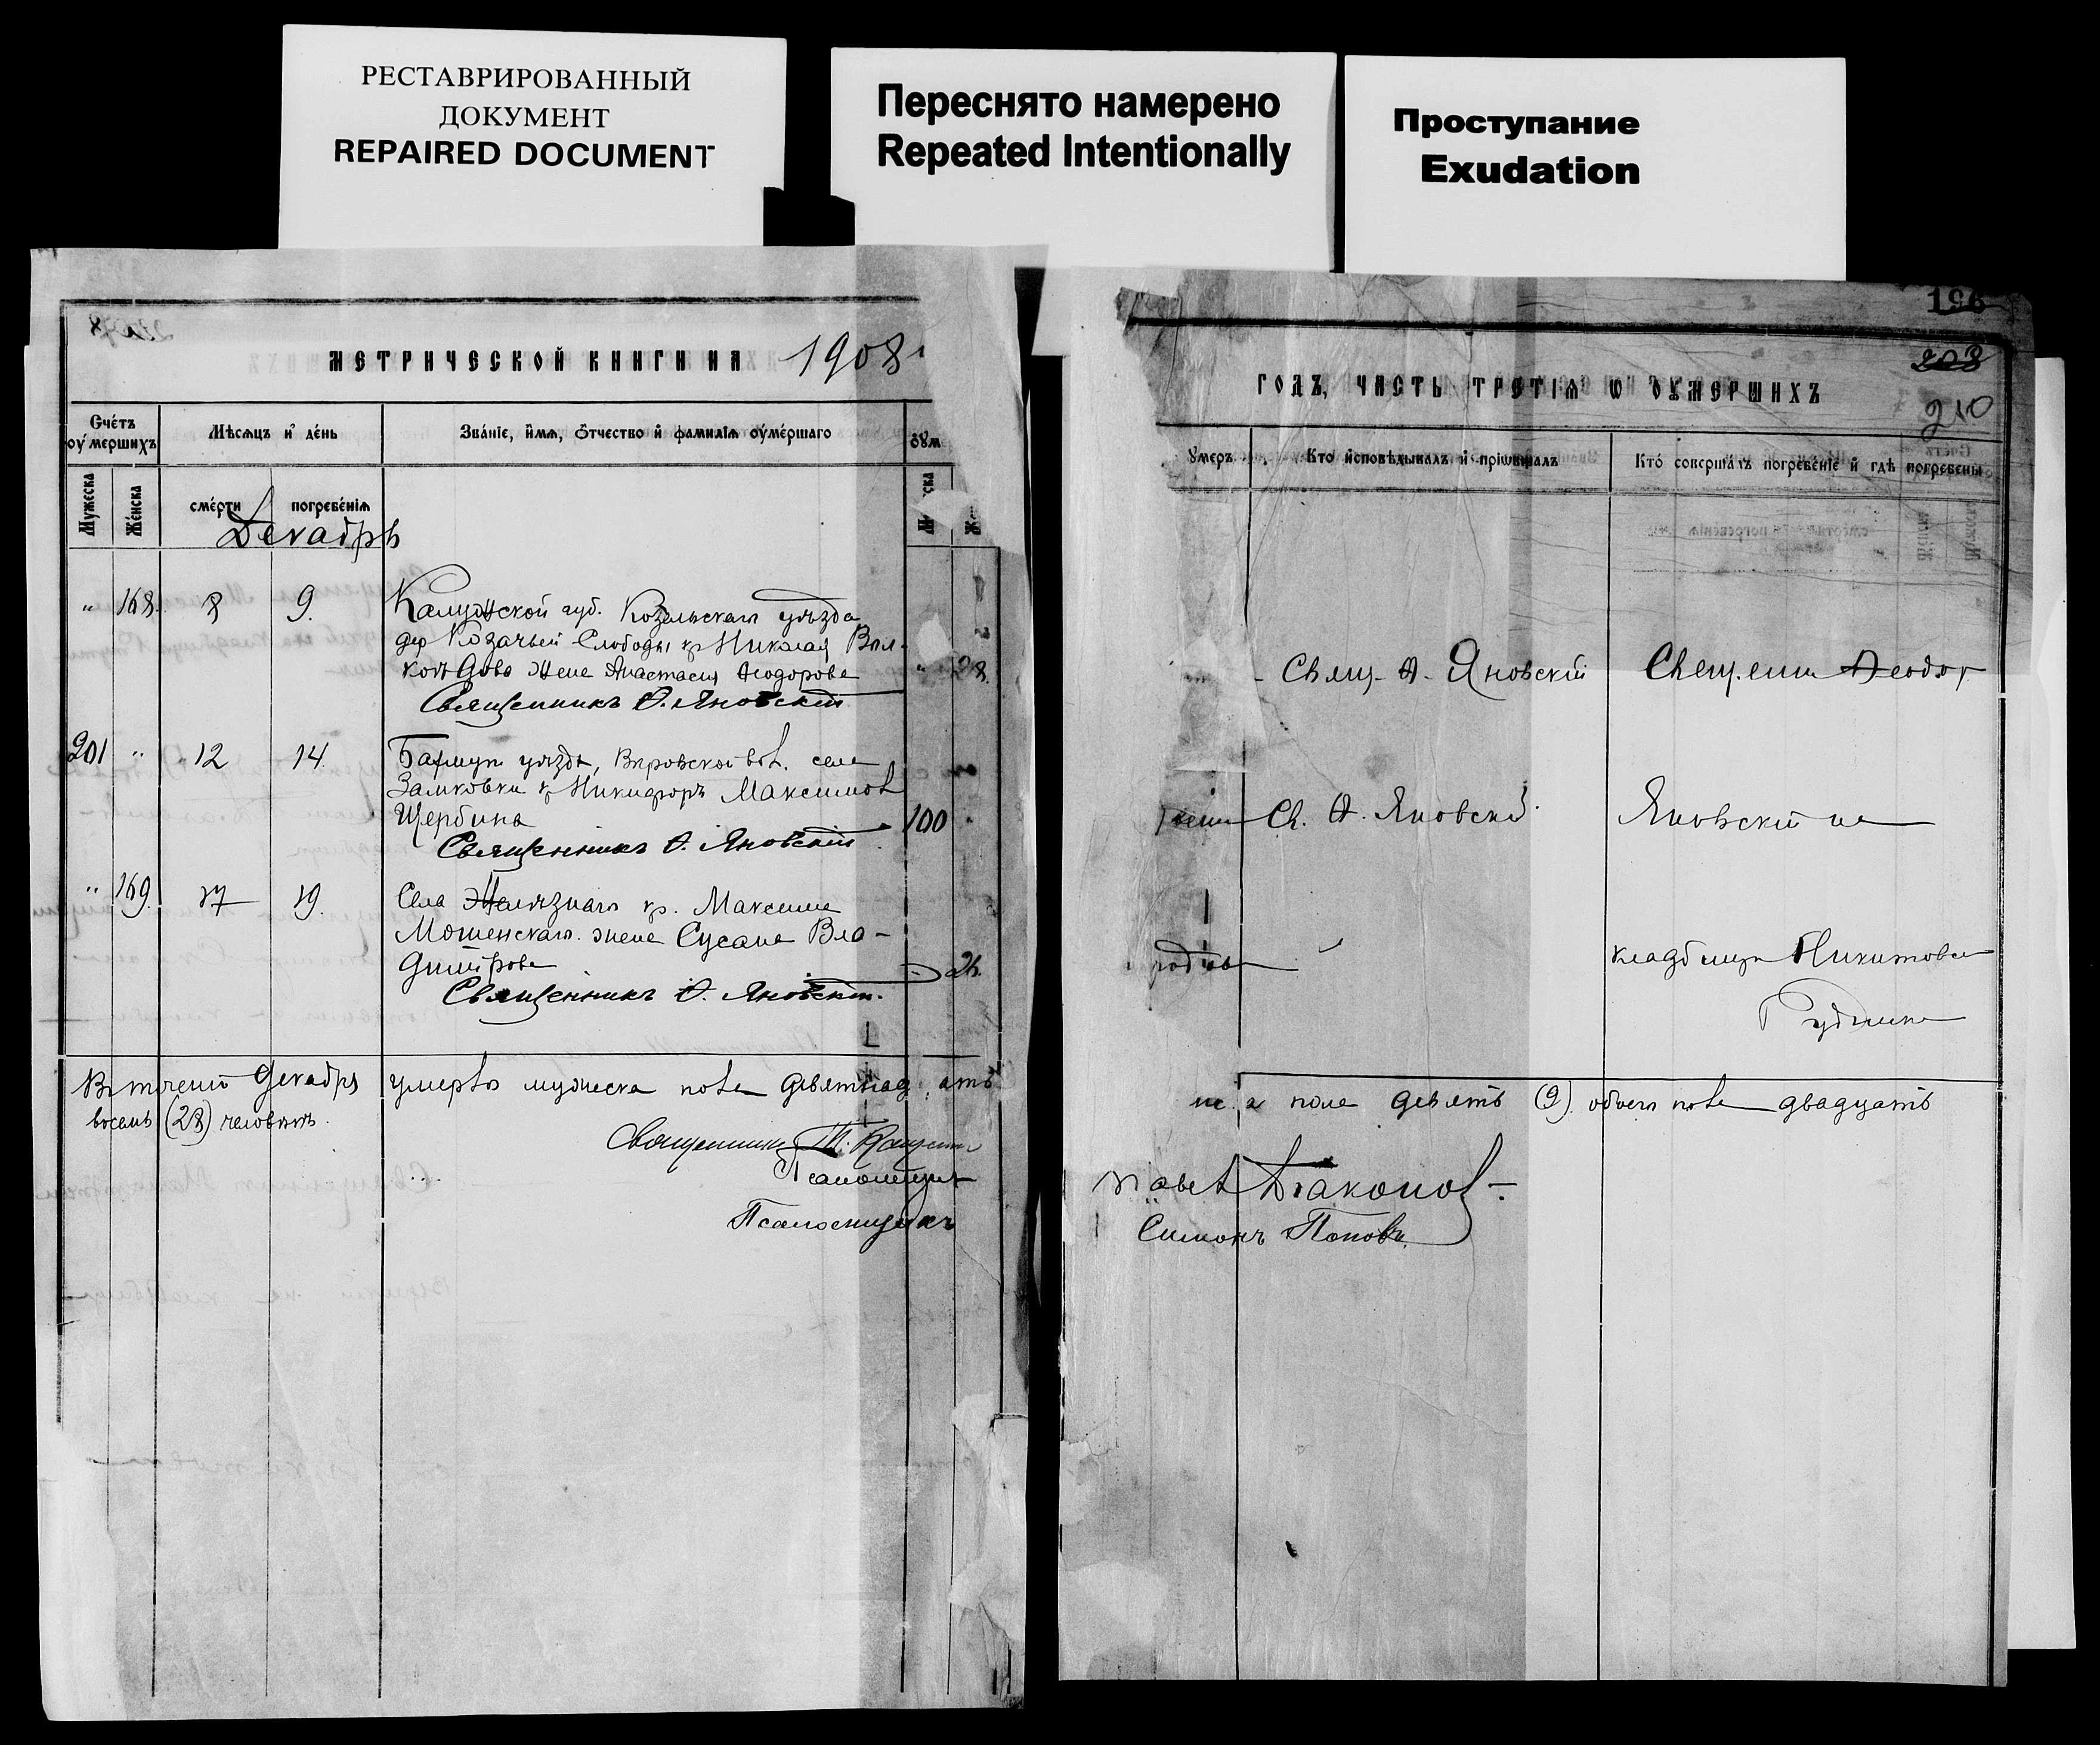 РЕСТАВРИРОВАННЫЙ
ДОКУМЕНТ
REPAIRED DOCUMENT
Переснято намерено
Repeated Intentionally
Проступание
Exudation
МЕТРИЧЕСКОЙ КНИГИ НА 1908
Счéтъ
оу́мершихъ
Мѣсяцъ и де́нь
Зва́нїе, и́мѧ, ѻ́тчество и҆ фамилїѧ оу҆ме́ршагѡ
Мужеска
Же́нска
сме́рти
погребе́нїѧ
Декабрь
„ 168. 8 9. Калужской губ. Козельскаго уѣзда
дер Козачьей Слободы кр Николая
жена Анастасия Ѳеодорова „ 28.
Священникъ Ѳ. Яновскій
201 „ 12 14. Бахмут уѣзда, села
кр Никифоръ Максимов
Щербина 100 „
Священникъ Ѳ. Яновскій
„ 169. 17 19. Села Желѣзнаго кр. Максима
Мошенскаго жена Сусана Вла-
димірова 26.
Священникъ Ѳ. Яновскій.
Въ теченіи Декабря умерло мужеска пола девятнадцать
восемь (28) человѣкъ.
Священникъ
Псаломщик
Псаломщикъ
196
203
210
ГОДЪ, ЧАСТЬ ТРЕТІѦ Ѡ ОУМЕРШИХЪ
умеръ
Кто́ и҆сповѣ́дывалъ и҆ прїѡбщалъ
Кто́ соверша́лъ погребе́нїе и҆ гдѣ̀ погребены̀
Свящ. Ѳ. Яновскій Священ Ѳеодор
Св. Ѳ. Яновскій Яновскій на
родов „ кладбищѣ Никитовка
Рудника
пола девять (9). обоего пола двадцать
Павел Дьяконов
Симонъ Поповъ